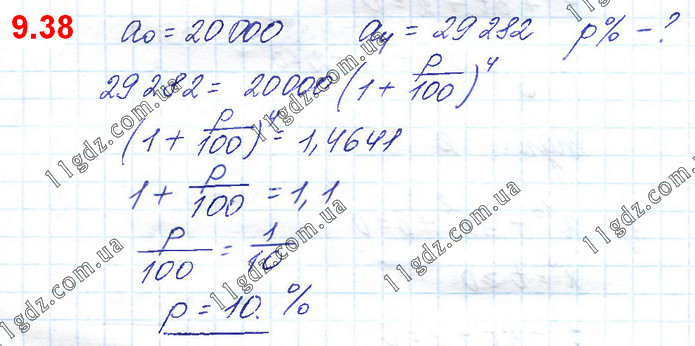 9.38 a₀ = 20 000 a₄ = 29 282 p% - ?
29 282 = 20 000 (1 + p/100)⁴
(1 + p/100)⁴ = 1,4641
1 + p/100 = 1,1
p/100 = 1/10
p = 10. %
11gdz.com.ua
11gdz.com.ua
11gdz.com.ua
11gdz.com.ua
11gdz.com.ua
11gdz.com.ua
11gdz.com.ua